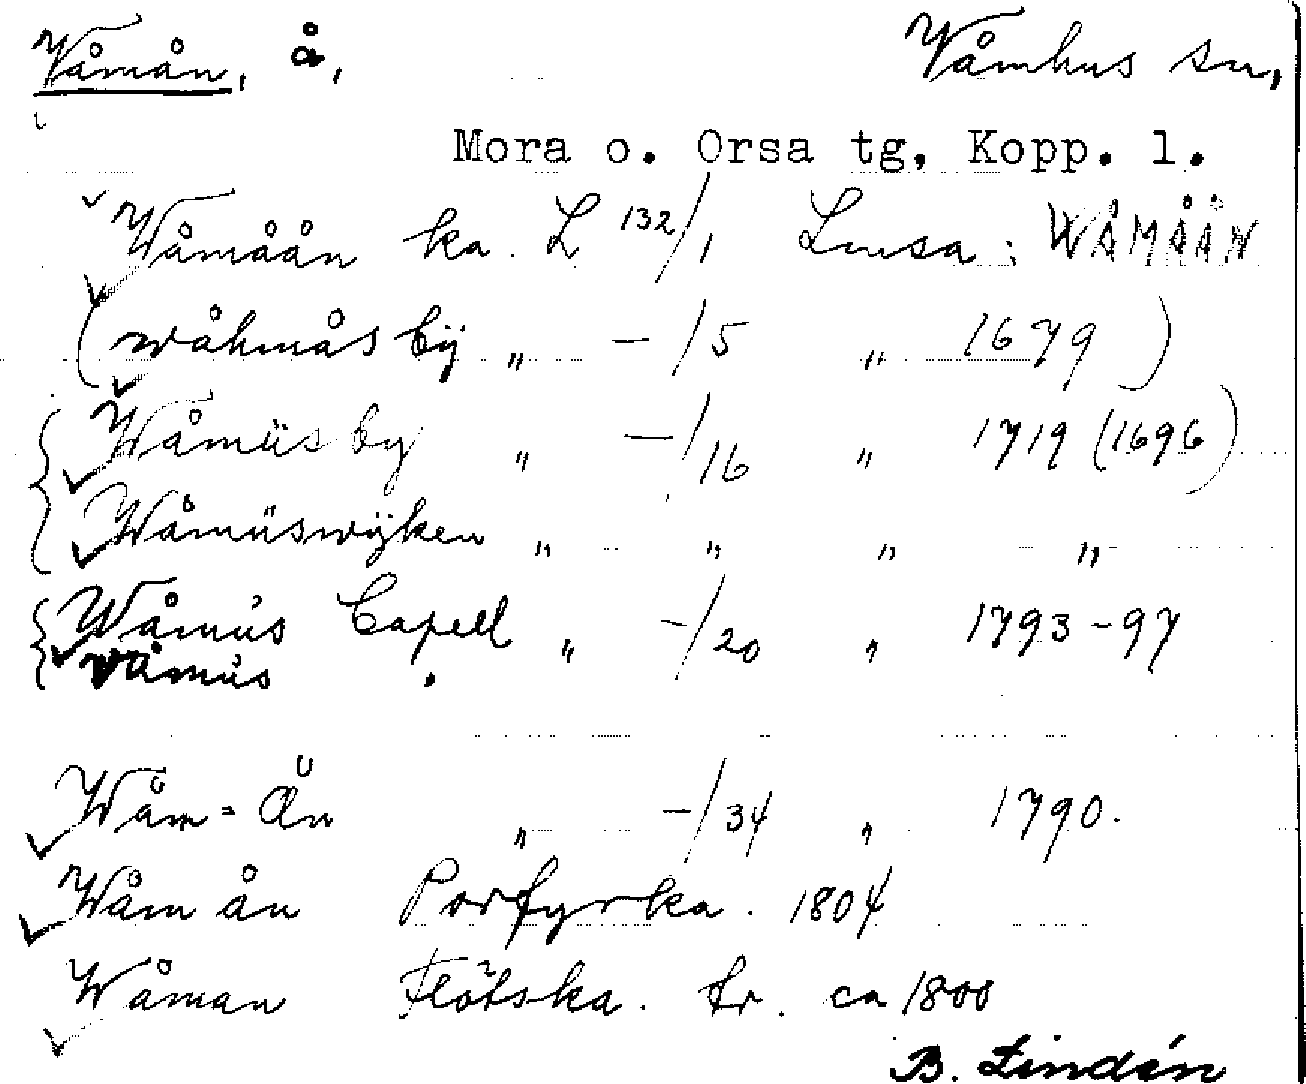 Våmån, å, Våmhus sn,
Mora o. Orsa tg, Kopp. l.
Wåmåån ka. L 132/1 Lmsa: WÅMÅÅN
(wåhmås bÿ „ —/5 „ 1679)
Wåmüs by „ —/16 „ 1719 (1696)
Wåmüswÿken „ „ „ „
Wåmus Capell „ —/20 „ 1793-97
Våmus
Wåm=Ån „ —/34 „ 1790.
Wåm ån Porfyrka. 1804
Wåman Flötska. fr. ca 1800
B. Lindén